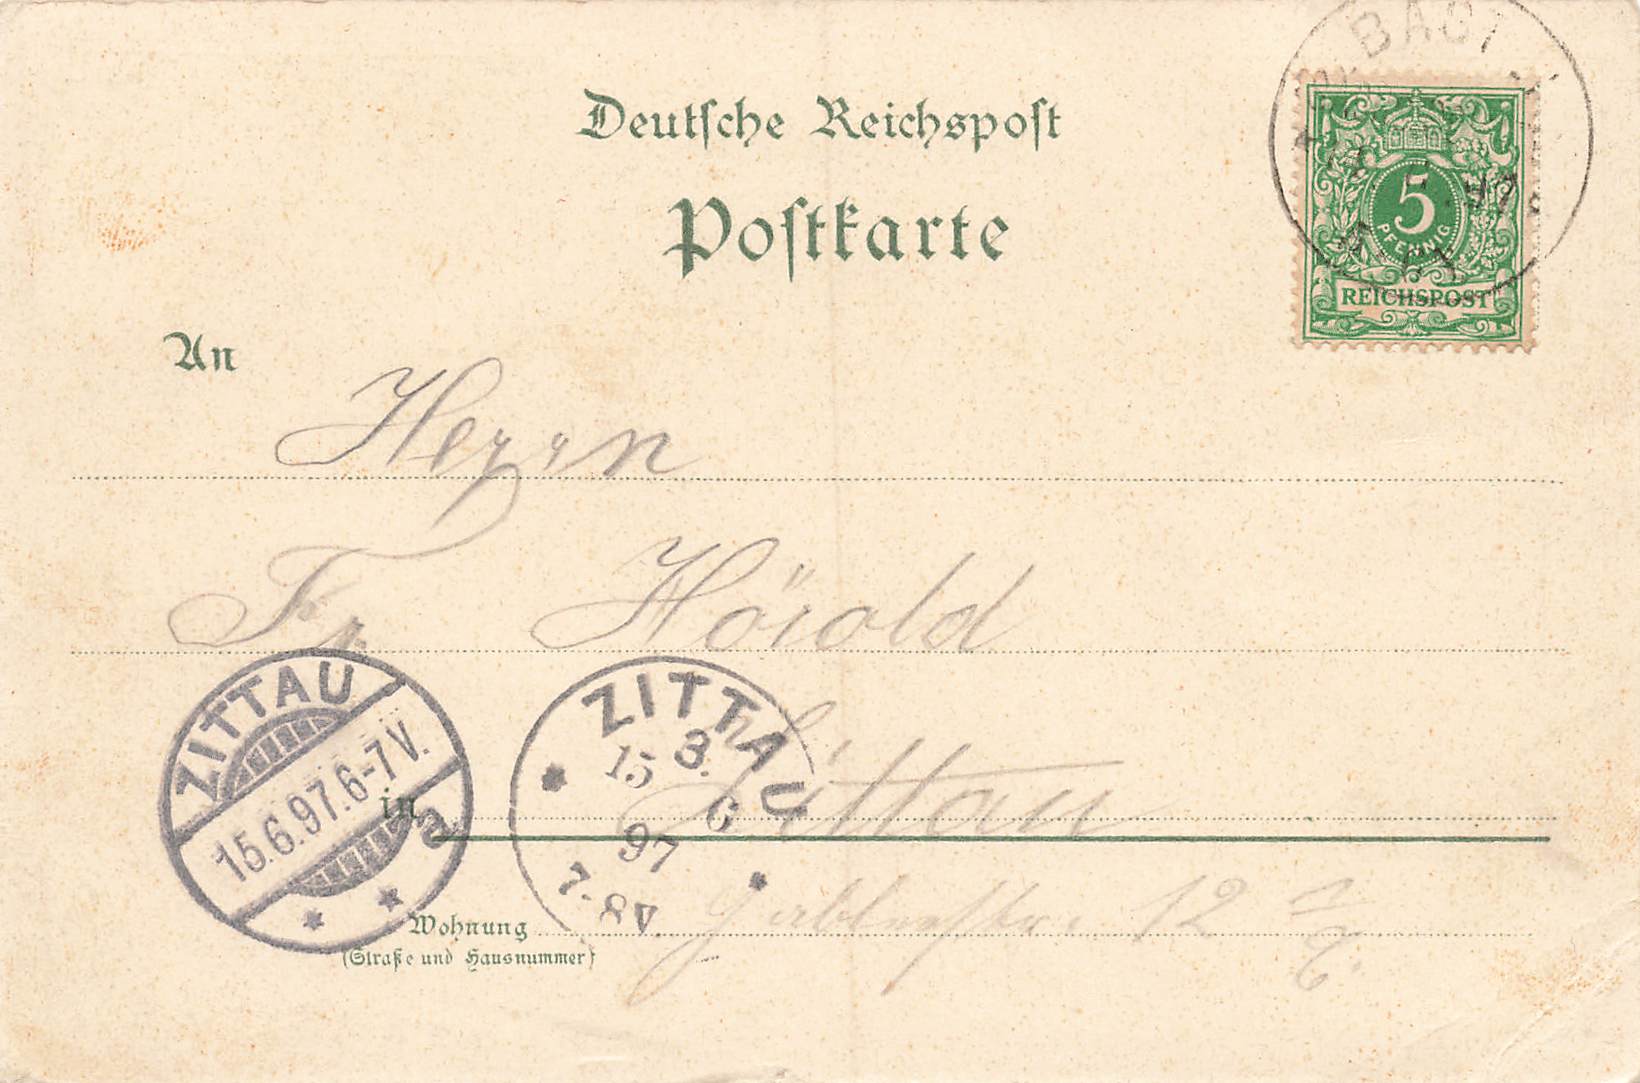 Deutsche Reichspost
Postkarte
5
PFENNIG
REICHSPOST
An
Herrn
Fr. Hörold
ZITTAU
15.6.97.6-7V.
a.
ZITTAU
3.
15 6
97
7-8V.
in Zittau
Wohnung 12
(Straße und Hausnummer)